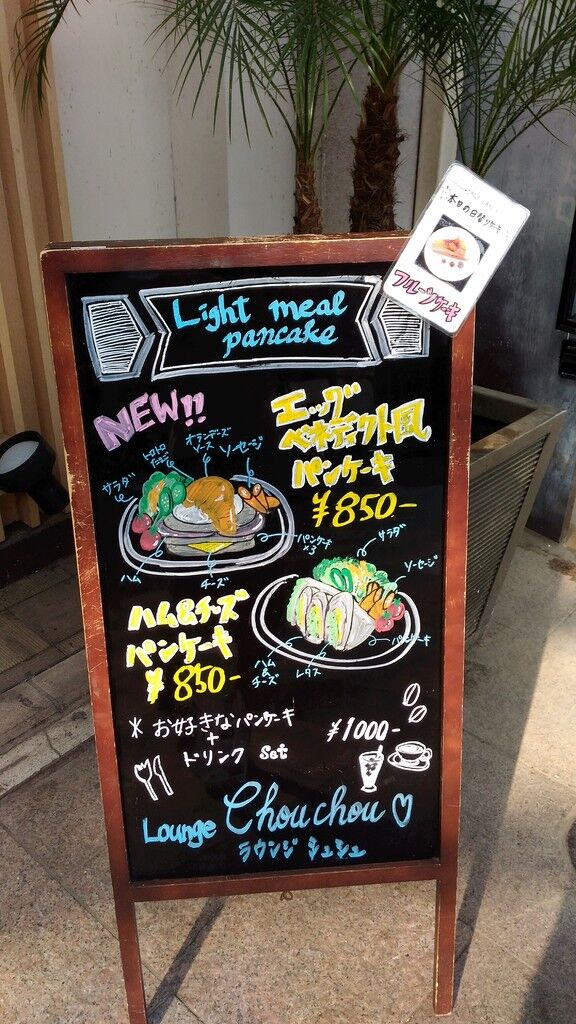 本日の日替りケーキ
フルーツケーキ
Light meal
pancake
NEW!!
エッグ
ベネディクト風
パンケーキ
¥850-
オランデーズ
ソース
ソーセージ
トロトロ
たまご
サラダ
パンケーキ
×3
ハム
チーズ
サラダ
ソーセージ
ハム&チーズ
パンケーキ
¥850-
パンケーキ
ハム
&
チーズ
レタス
* お好きなパンケーキ
+
ドリンク Set
¥1000-
Lounge Chouchou♡
ラウンジ シュシュ